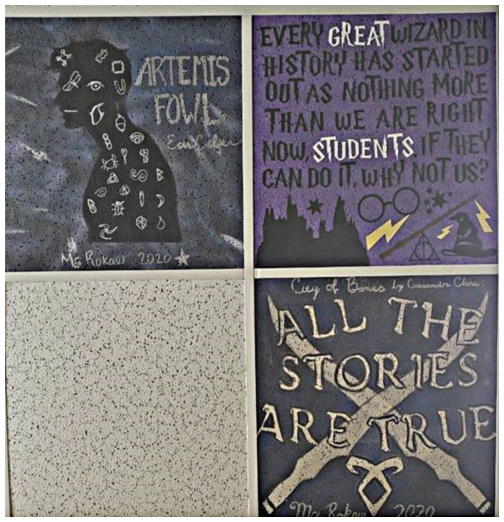 ARTEMIS
FOWL
Eoin Colfer
Ms Rokaw 2020
EVERY GREAT WIZARD IN
HISTORY HAS STARTED
OUT AS NOTHING MORE
THAN WE ARE RIGHT
NOW, STUDENTS IF THEY
CAN DO IT, WHY NOT US?
City of Bones by Cassandra Clare
ALL THE
STORIES
ARE TRUE
Ms Rokaw 2020